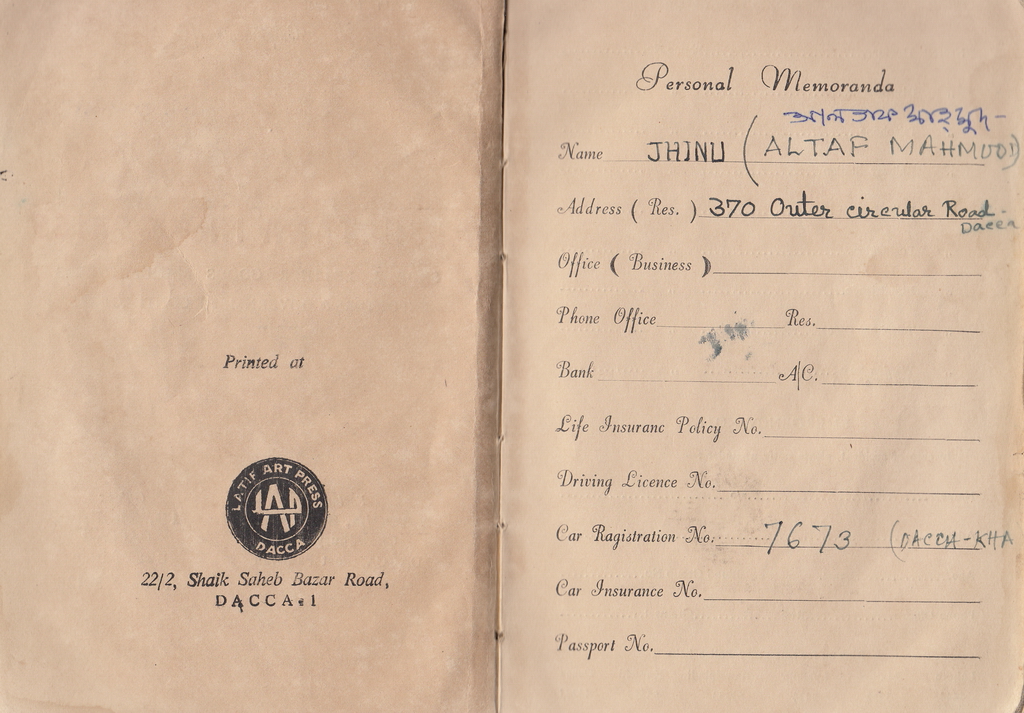 Printed at
LATIF ART PRESS
DACCA
22/2, Shaik Saheb Bazar Road,
DACCA-1
Personal Memoranda
আলতাফ মাহমুদ-
Name JHINU (ALTAF MAHMUD)
Address ( Res. ) 370 Outer circular Road-
Dacca
Office ( Business )
Phone Office Res.
Bank A/C.
Life Insuranc Policy No.
Driving Licence No.
Car Ragistration No. 7673 (DACCA-KHA
Car Insurance No.
Passport No.